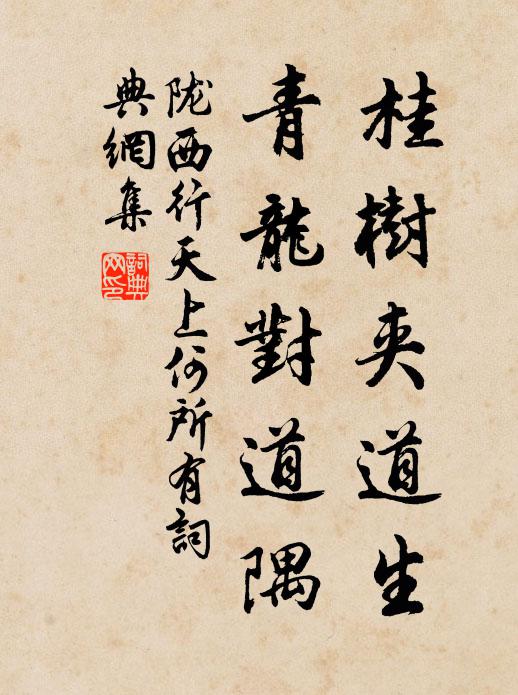 桂樹夾道生
青龍對道隅
陇西行天上何所有詞
典網集
詞典
网印